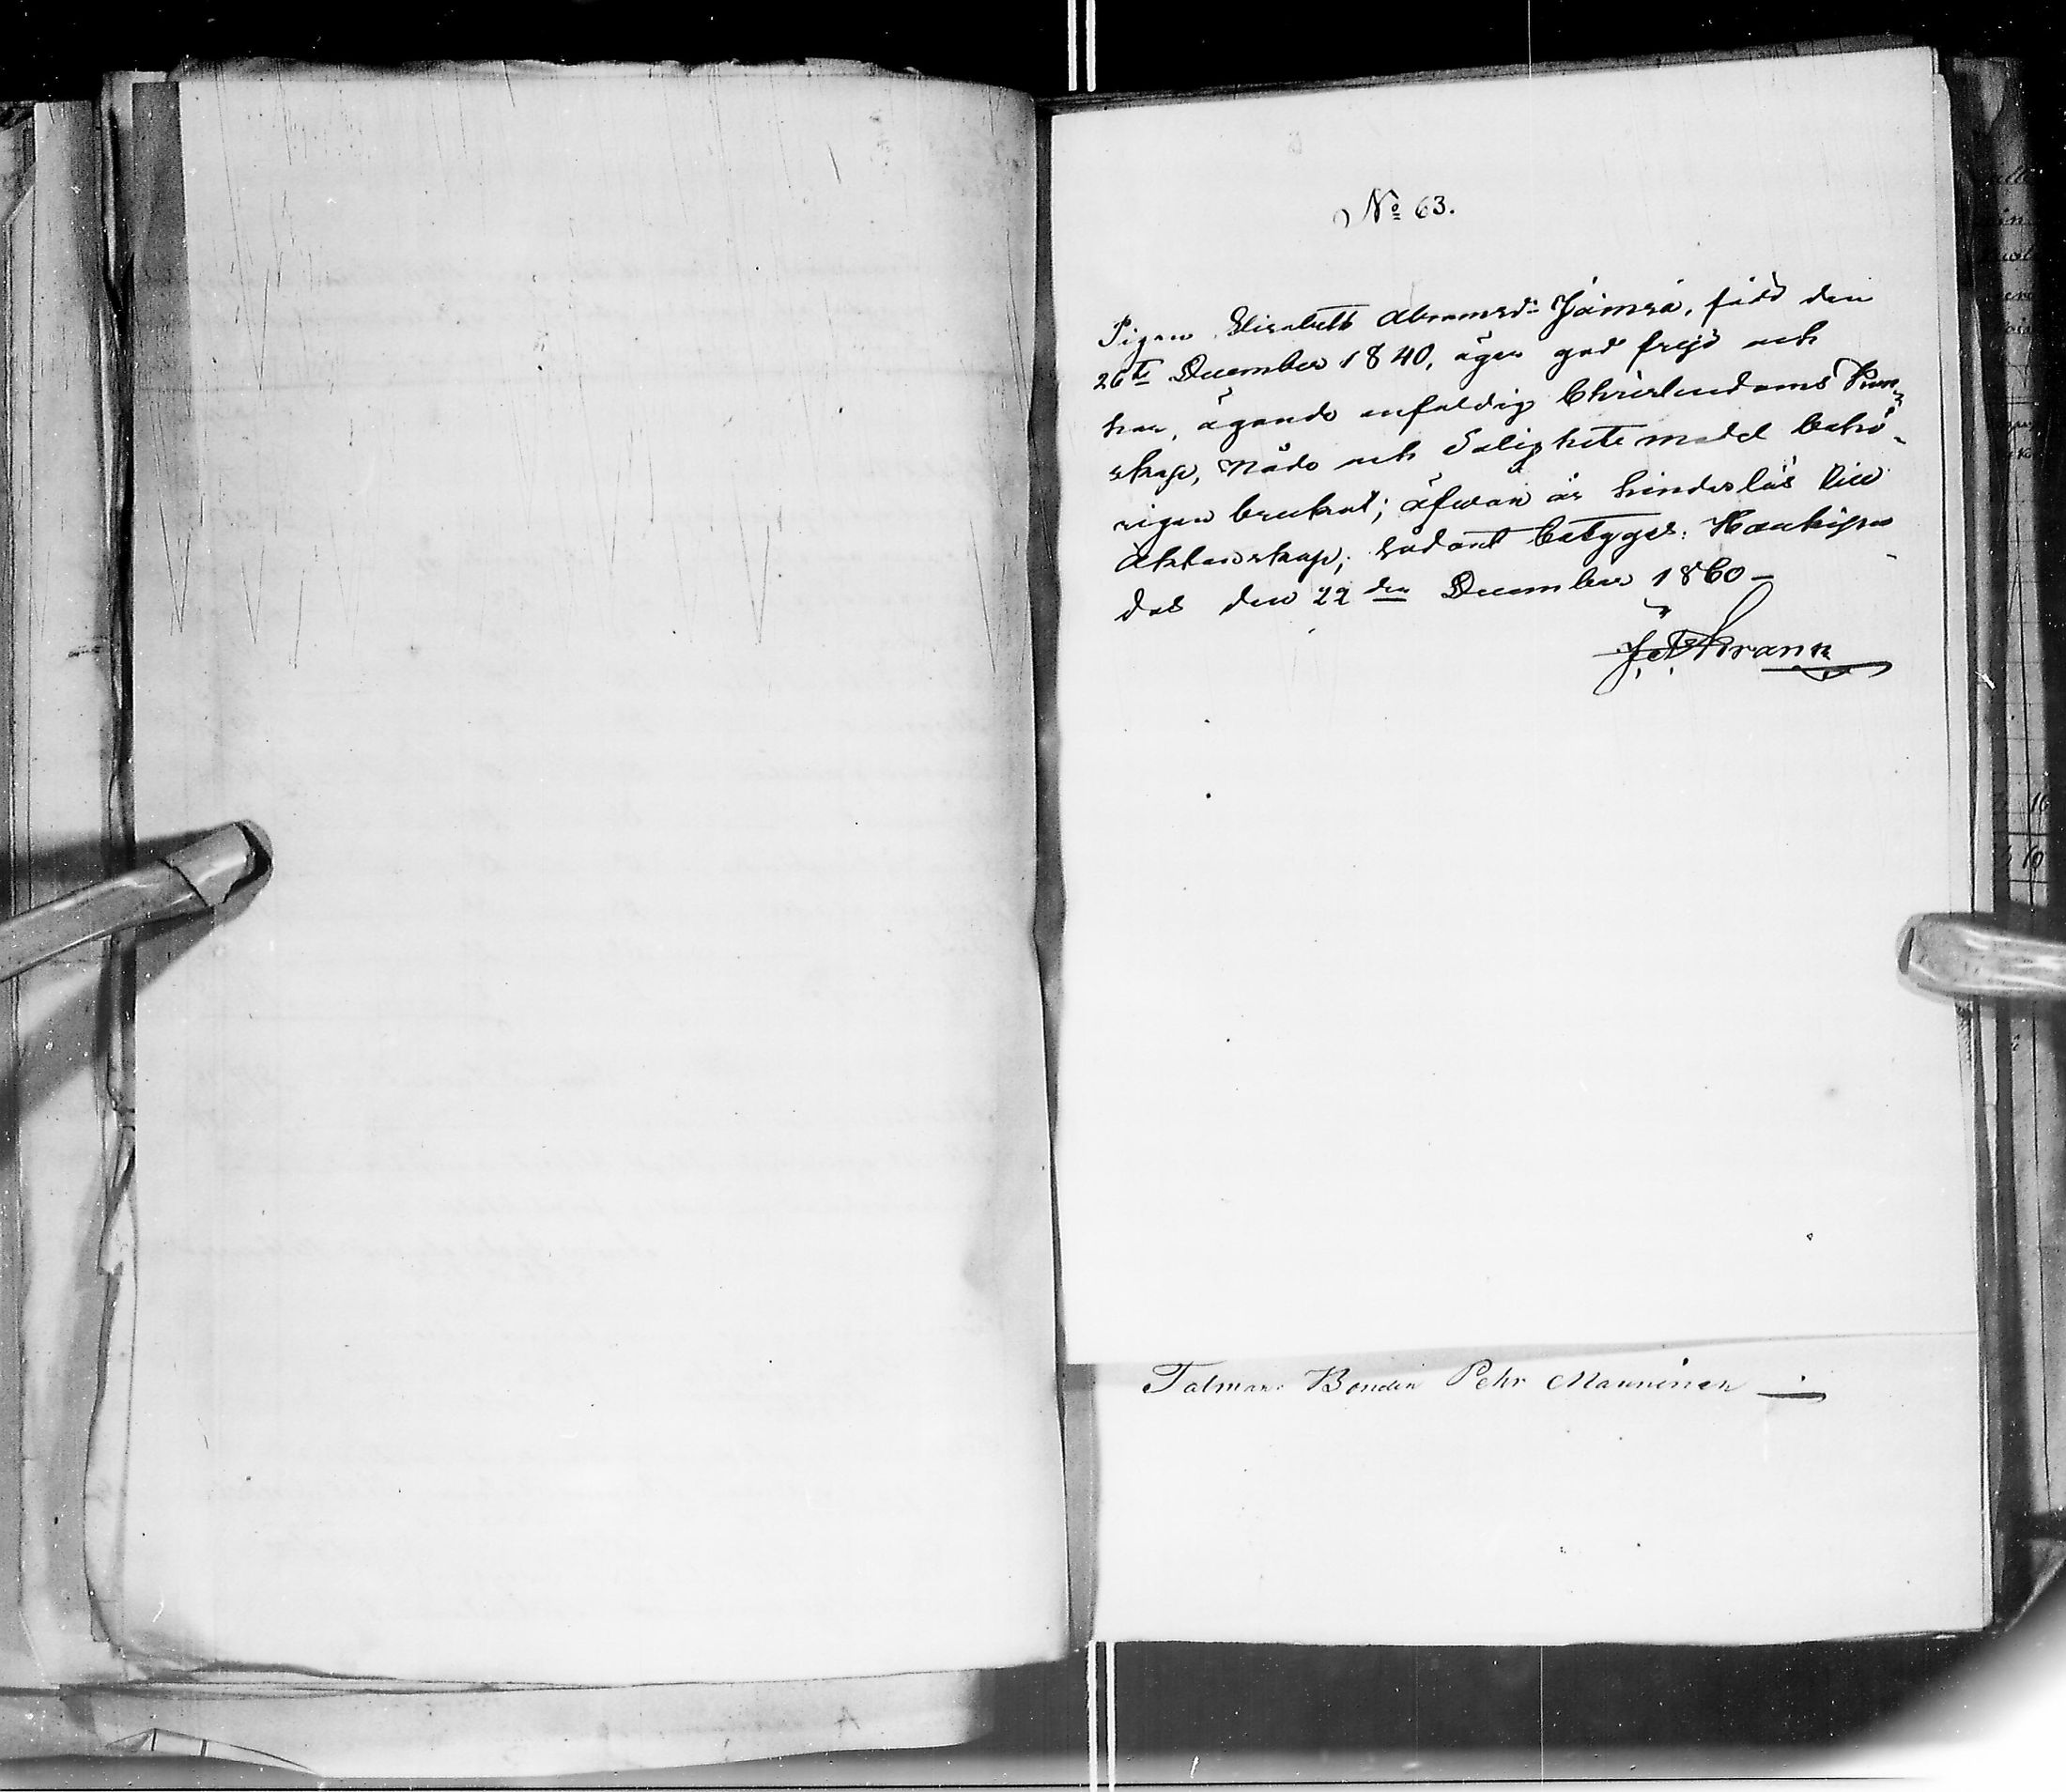 No 63.
Pigan Elisabeth Abramsd:r Jämsä, född den
26te December 1840, äger god frejd och
har, ägande enfaldig Christendoms Kun-
skap, Nåde och Salighets medel behö-
rigen brukat; äfwen är hinderlös till
Äktenskap; sådant betygges. Haukipu-
das den 22dra December 1860 –
Frann
Tolman: Bonden Pehr Manninen